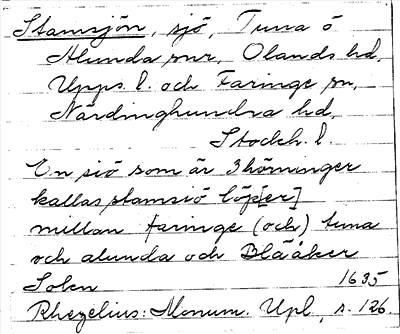 Stamsjön, sjö, Tuna o
Alunda snr, Olands hd,
Upps. l. och Faringe sn,
Närdinghundra hd,
Stockh. l.
En siö som är 3hörninger
kallas stamsiö löp[er]
millan faringe (och) tuna
och alunda och Blååker
Solen 1635
Rhezelius: Monum. Upl., s. 126.